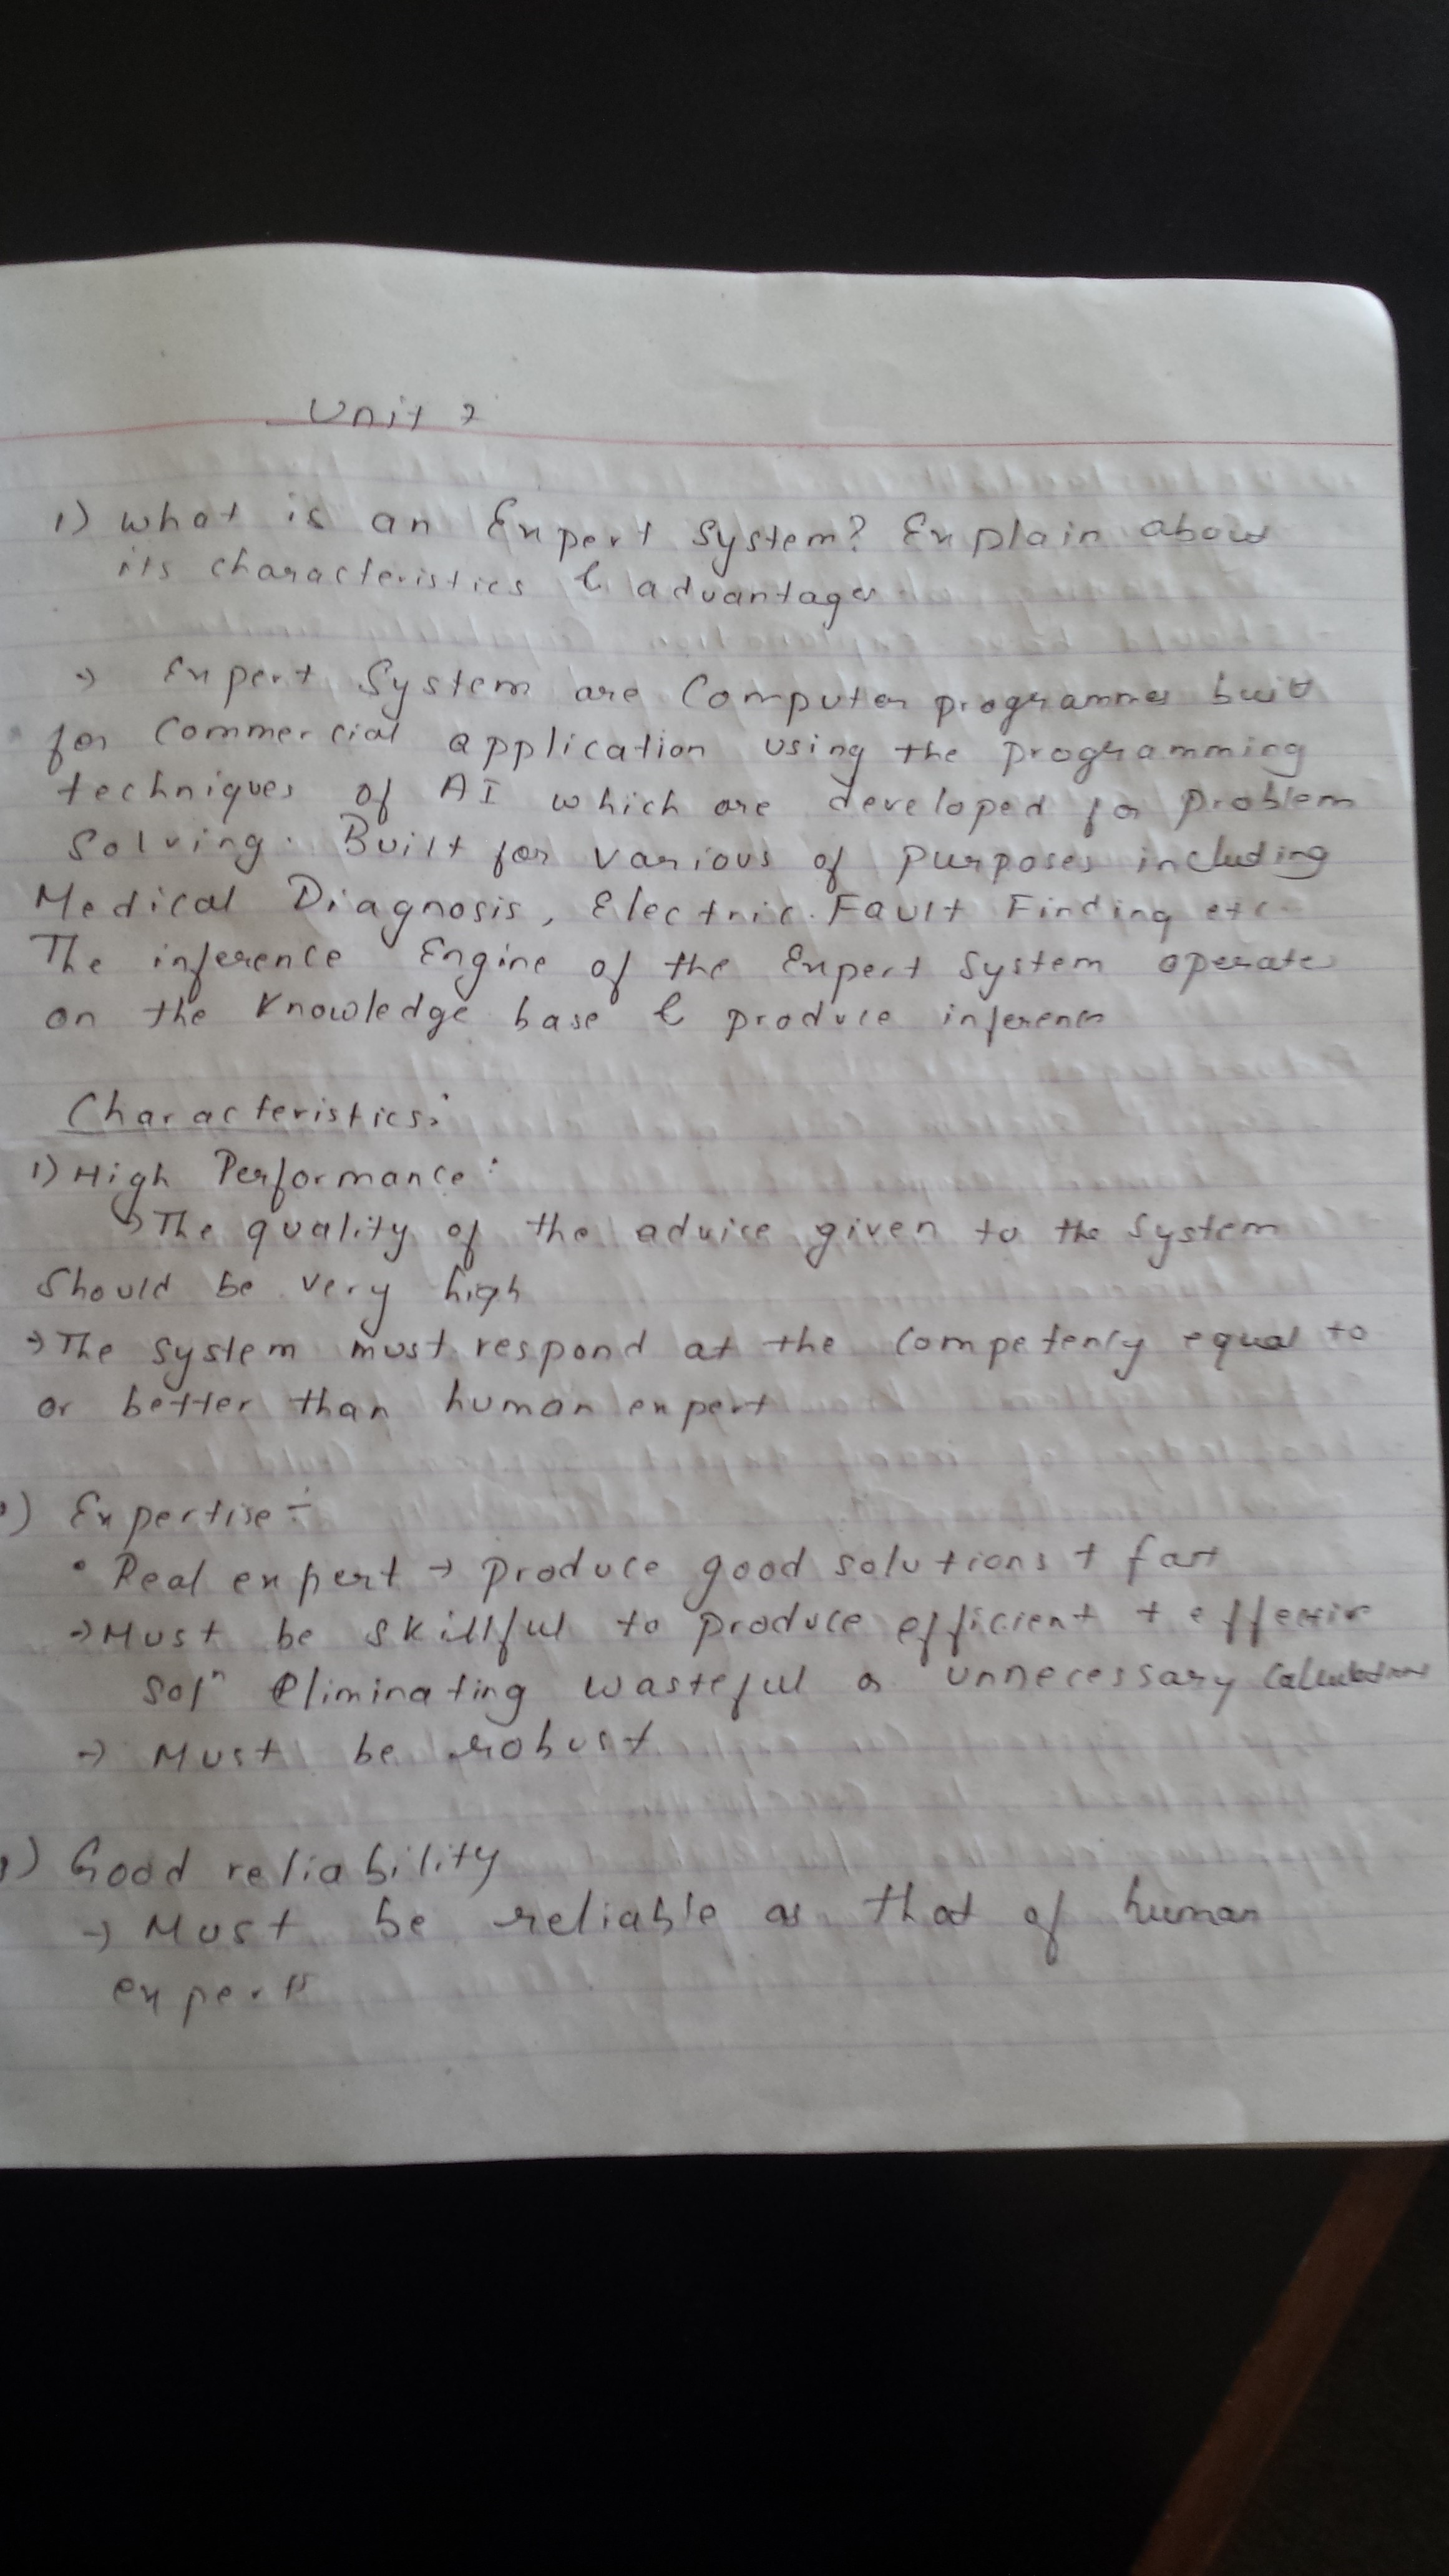 Unit 7
1) What is an Expert System? Explain about
its characteristics & advantages
→ Expert System are Computer programmes built
for Commercial application using the programming
techniques of AI which are developed for problem
Solving. Built for various of purposes including
Medical Diagnosis, Electric Fault Finding etc.
The inference Engine of the Expert System operates
on the Knowledge base & produce inferences
Characteristics:
1) High Performance:
→ The quality of the advice given to the System
should be very high
→ The system must respond at the Competency equal to
or better than human expert
) Expertise :-
• Real expert → produce good solutions + fast
→ Must be skillful to produce efficient + effective
solⁿ eliminating wasteful or unnecessary Calculations
→ Must be robust
) Good reliability
→ Must be reliable as that of human
experts